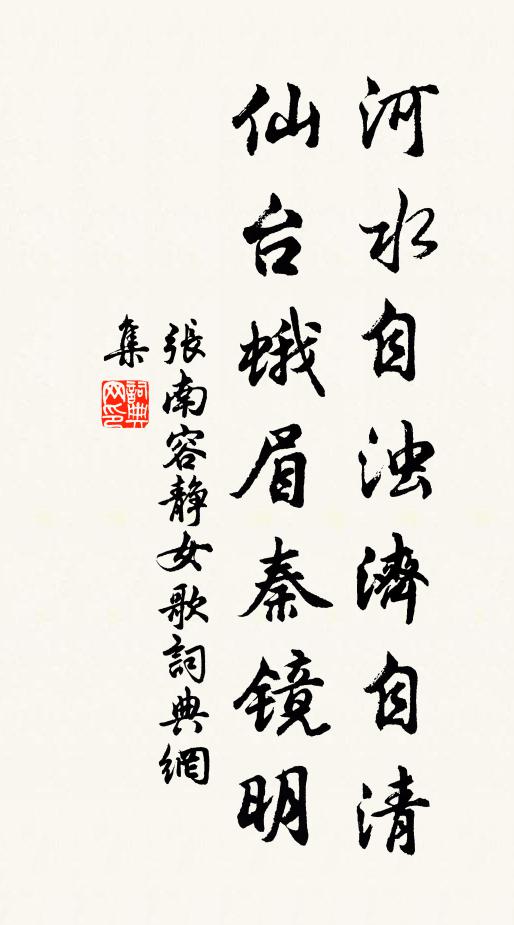 河水自浊濟自清
仙台蛾眉秦镜明
張南容静女歌詞典網
集
詞典
网印